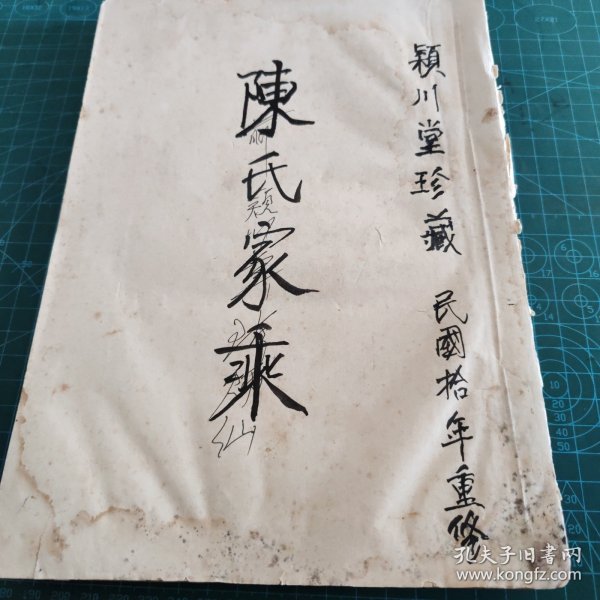 穎川堂珍藏 民國拾年重修
陳氏家乘
孔夫子旧书网
www.kongfz.com